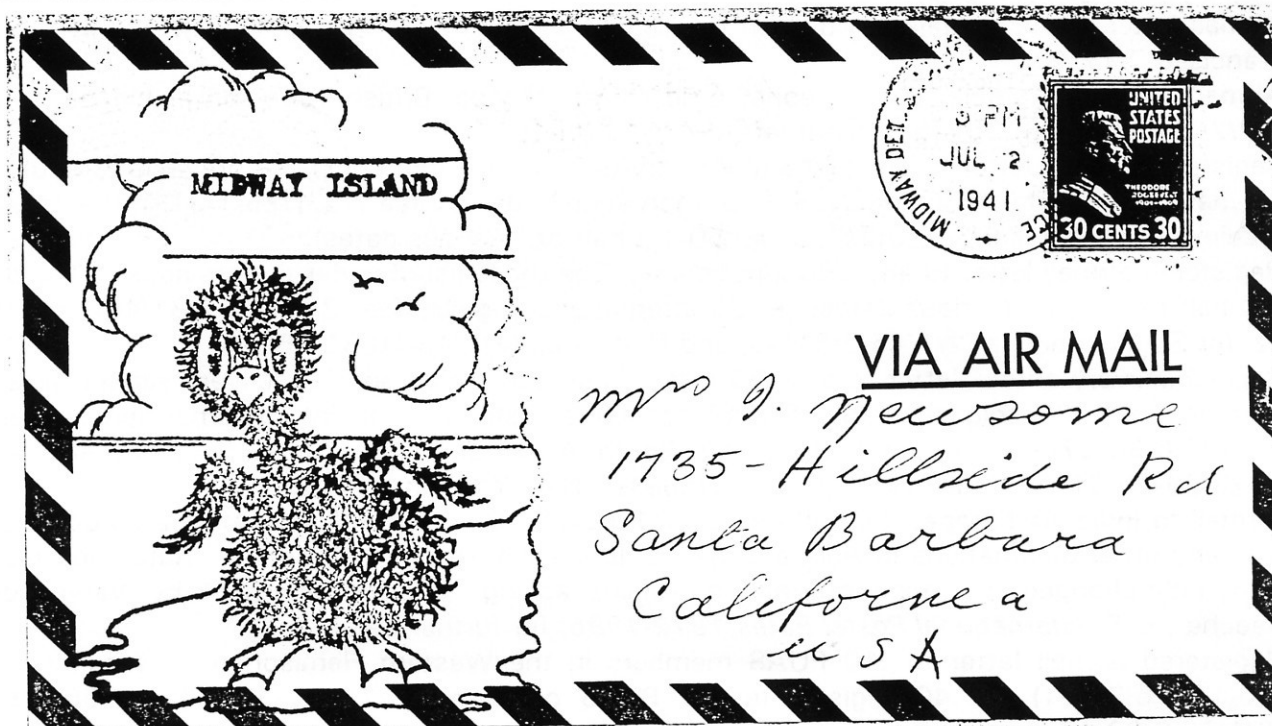 MIDWAY ISLAND
MIDWAY DET.
PM
JUL 2
1941
UNITED
STATES
POSTAGE
THEODORE
ROOSEVELT
1901-1909
30 CENTS 30
VIA AIR MAIL
Mrs J. Newsome
1735-Hillside Rd
Santa Barbara
California
U S A